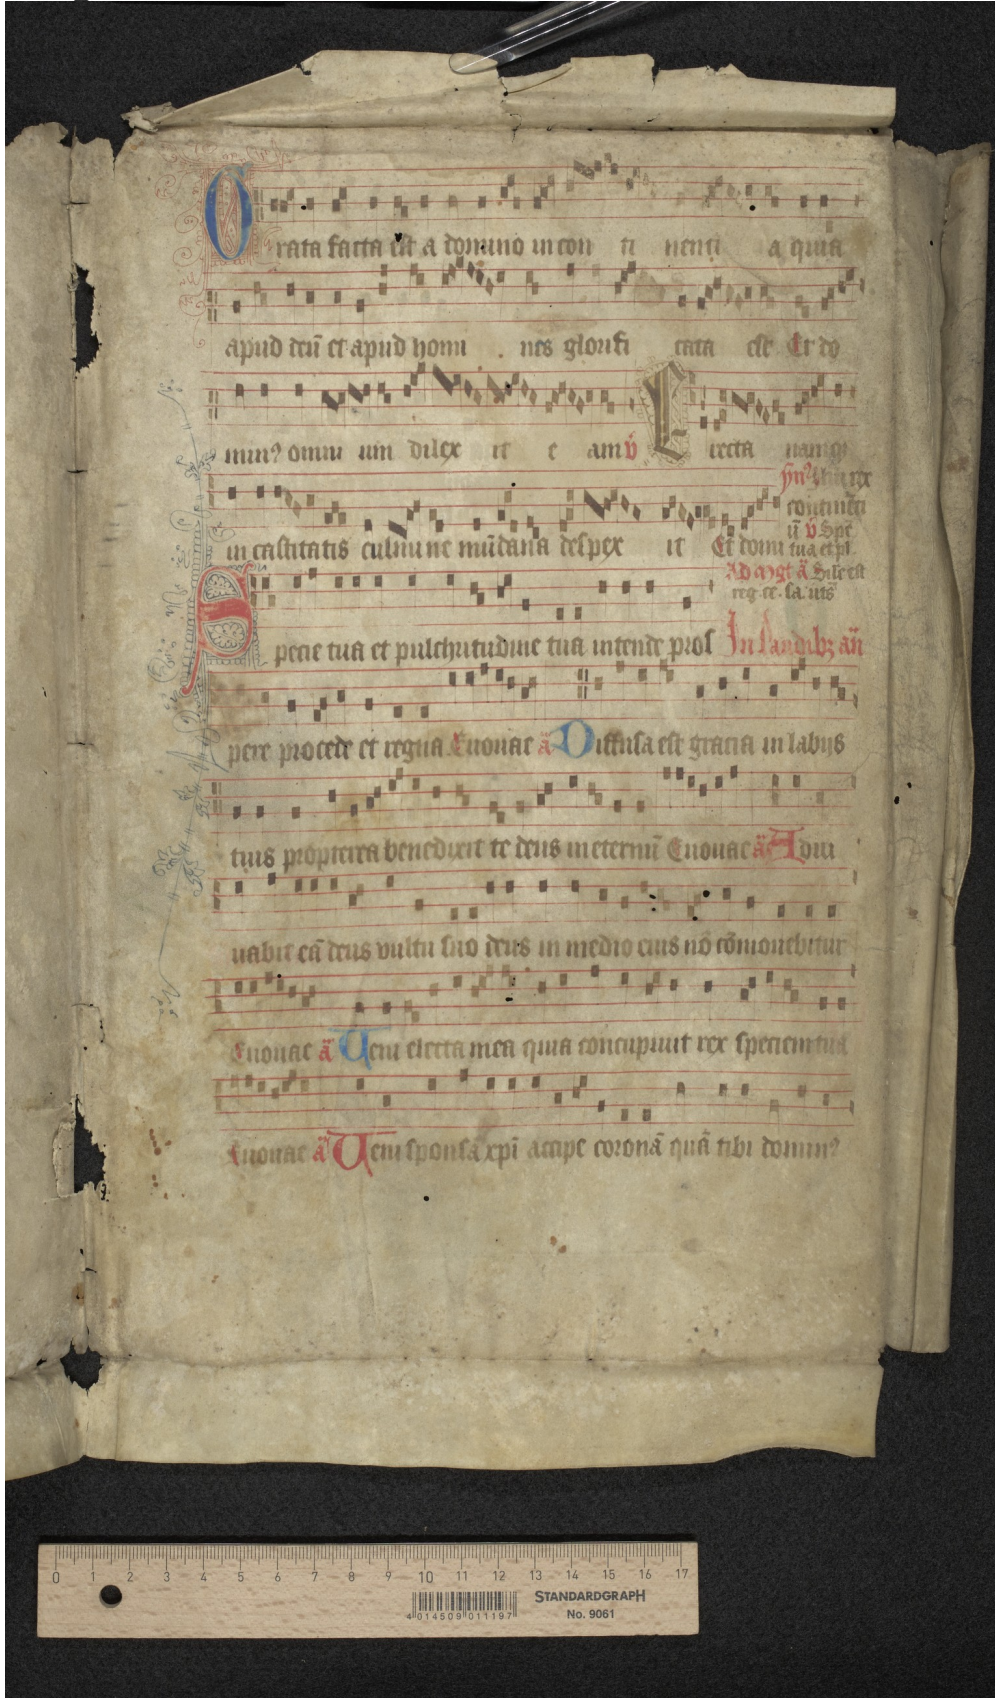 Grata facta est a domino in con ti nenti a quia
apud deū et apud homi nes glorifi cata est Et do
min⁹ omni um dilex it e am v̄ Erecta namq̄
in castitatis culmine mūdana despex it Et domi
continēti
ū v̄ Spe
tua et pl
Ad mgt ā Simile est
reg. ce.
Specie tua et pulchritudine tua intende pros In laudibꝫ añ
pere procede et regna Euouae ā Diffusa est gracia in labijs
tuis propterea benedixit te deus in eternū Euouae ā Adiu
uabit eā deus vultu suo deus in medio eius nō cōmouebitur
Euouae ā Veni electa mea quia concupiuit rex speciem tuā
Euouae ā Veni sponsa xp̄i accipe coronā quā tibi domin⁹
0 1 2 3 4 5 6 7 8 9 10 11 12 13 14 15 16 17
4 014509 011197
STANDARDGRAPH
No. 9061